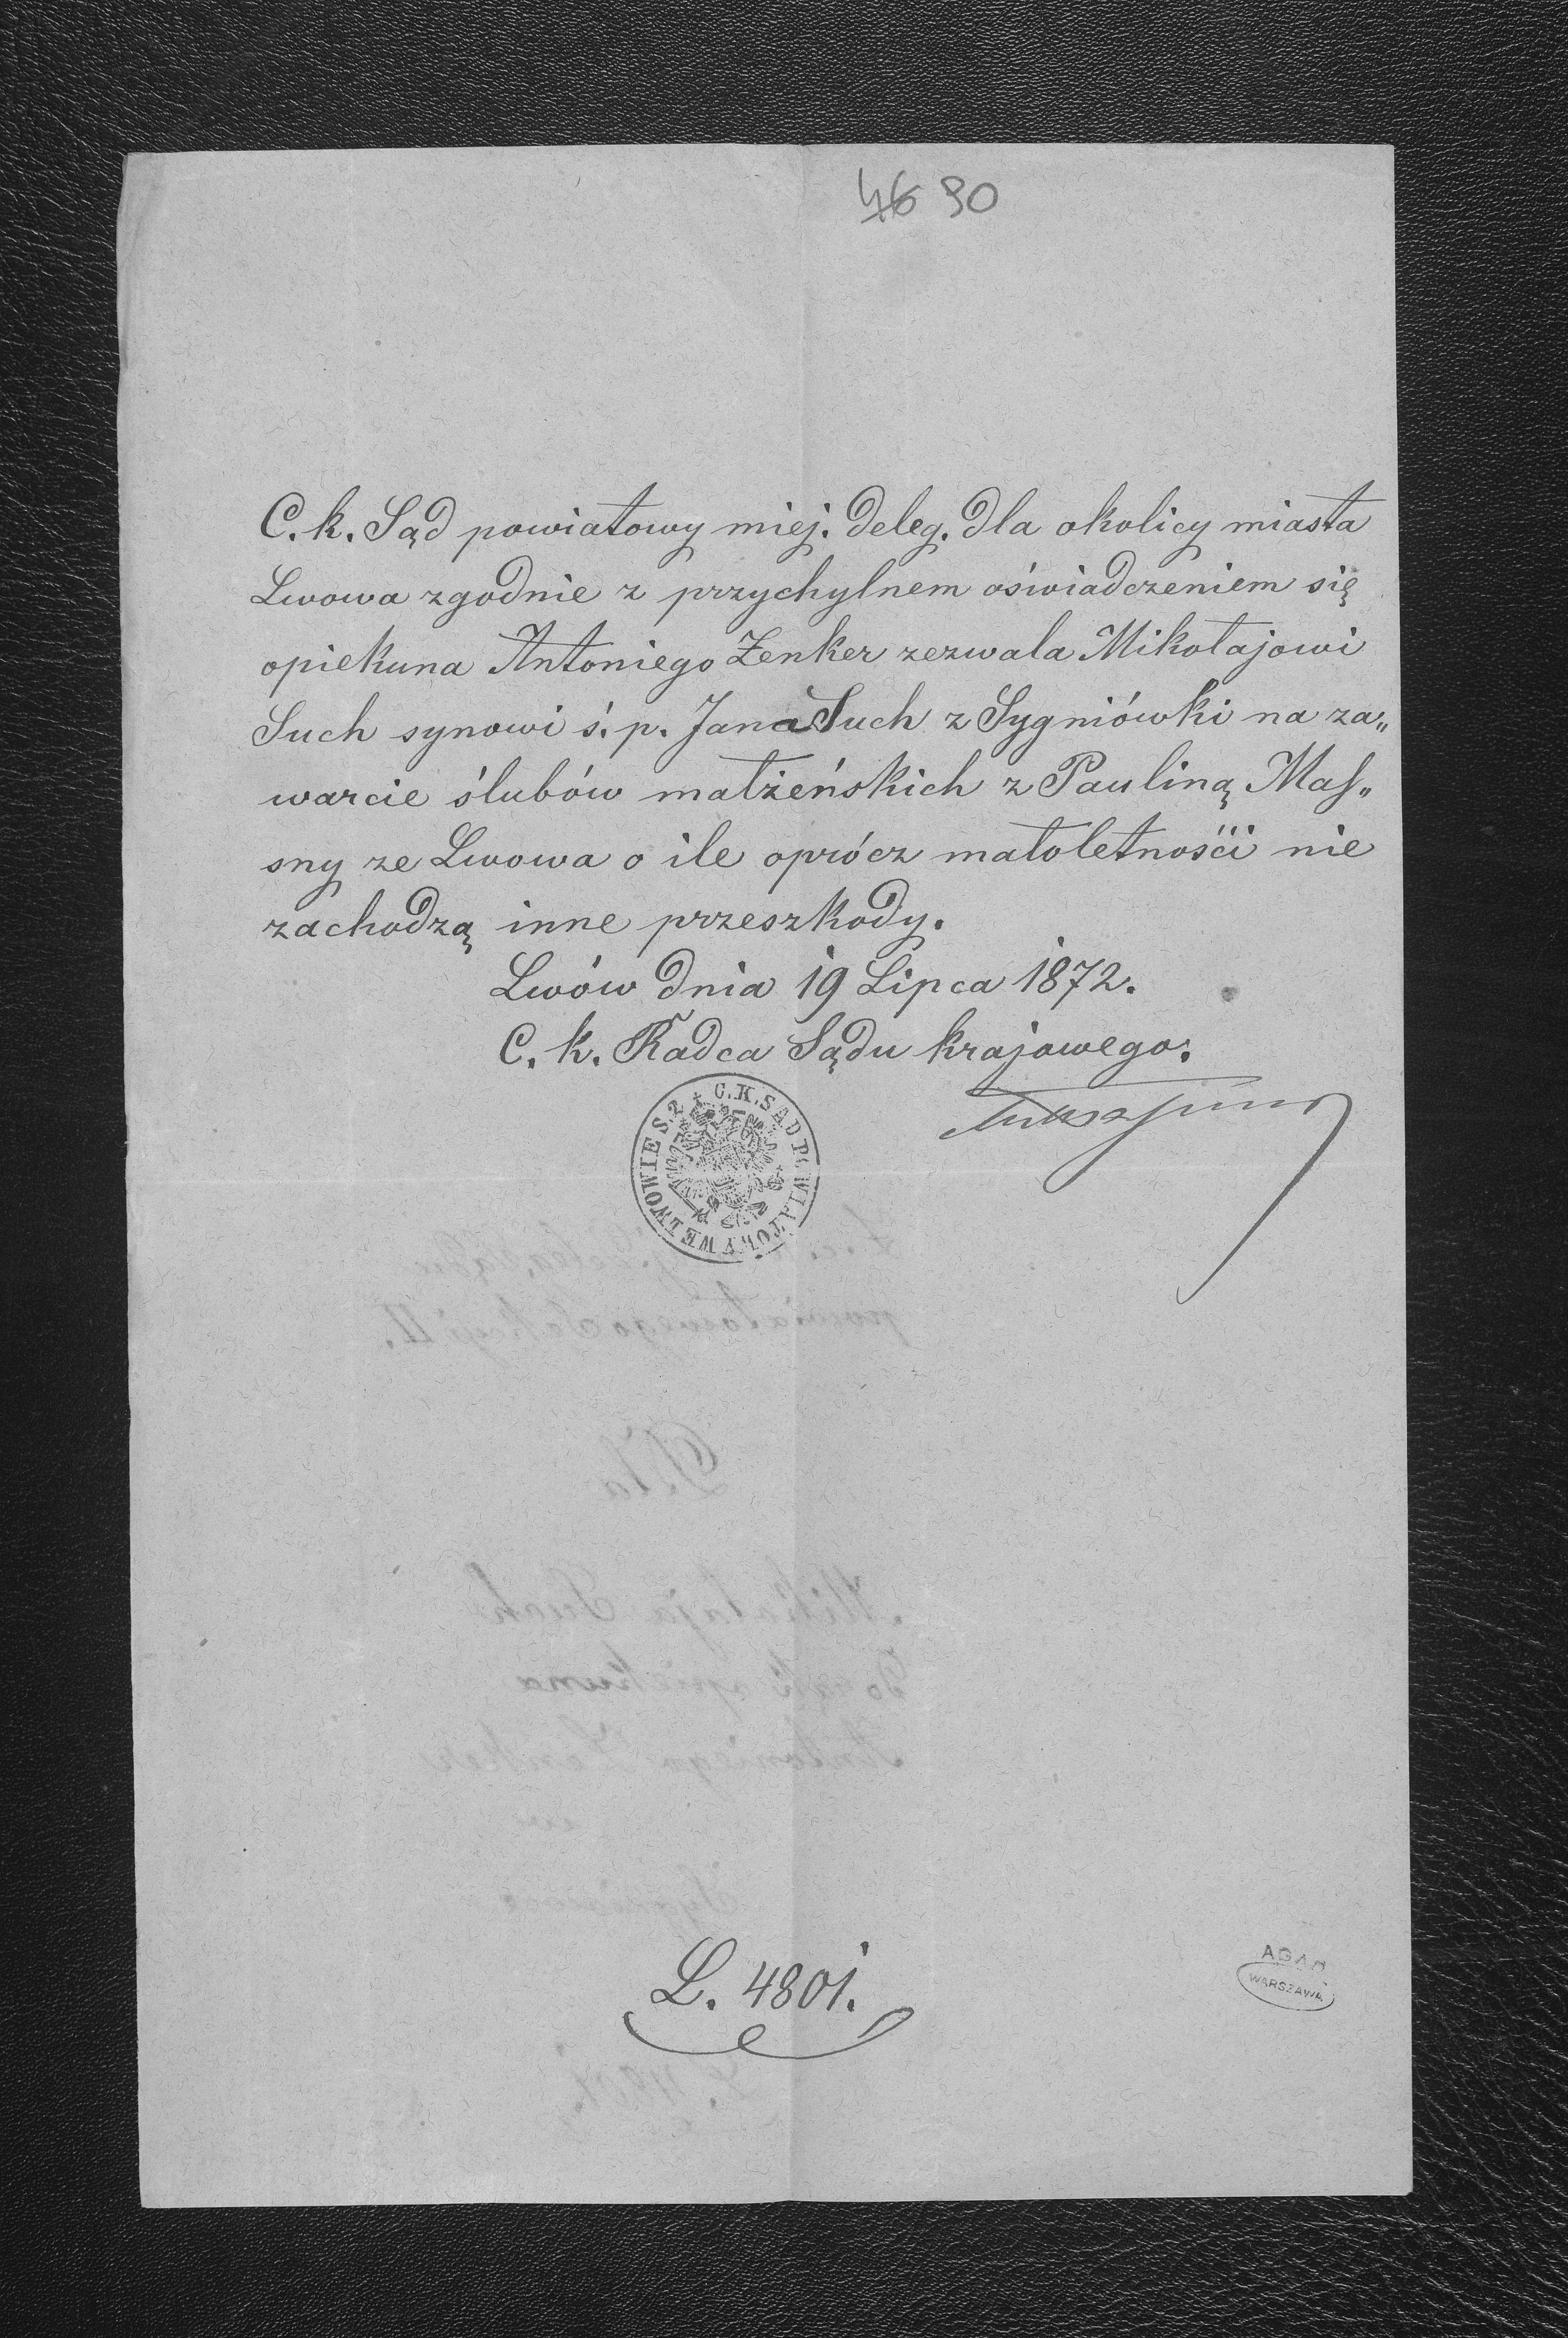 46 90
C. k. Sąd powiatowy miej. deleg. dla okolicy miasta
Lwowa zgodnie z przychylnem oświadczeniem się
opiekuna Antoniego Zenker zezwala Mikołajowi
Such synowi ś. p. Jana Such z Sygniówki na za„
warcie ślubów małżeńskich z Pauliną Mas„
sny ze Lwowa o ile oprócz małoletności nie
zachodzą inne przeszkody.
Lwów dnia 19 Lipca 1872.
C. k. Radca Sądu krajowego.
C.K. SAD POWIATOWY WE LWOWIE S.2
L. 4801.
AGAD
WARSZAWA